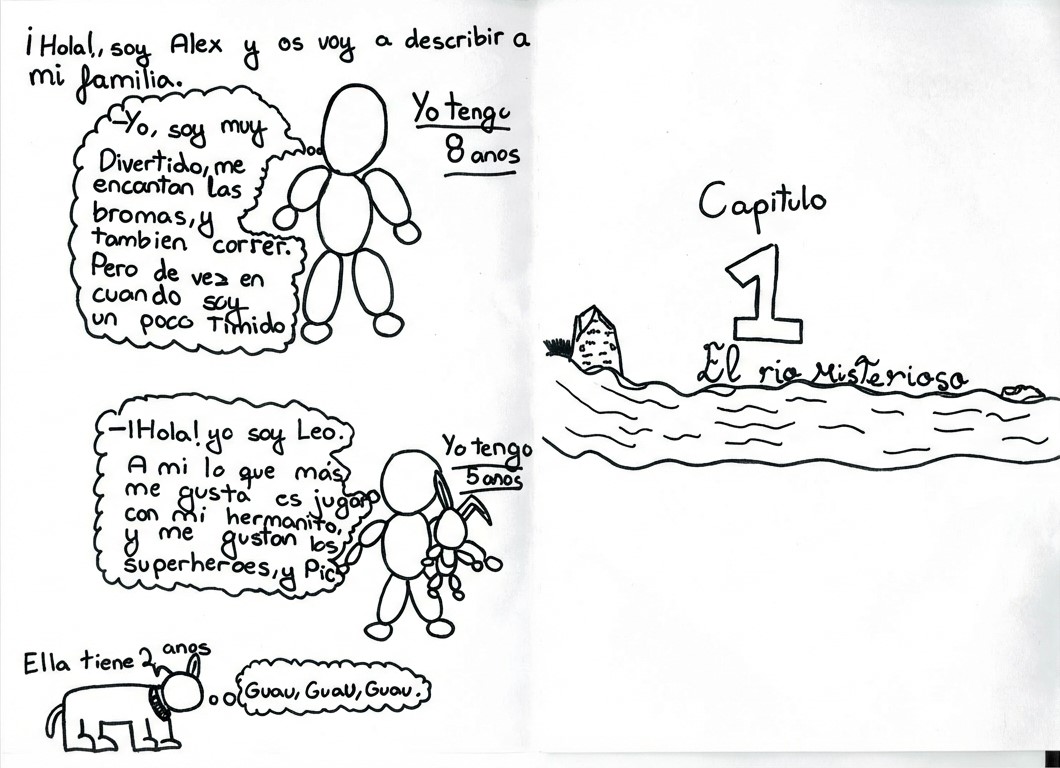 ¡Hola!, soy Alex y os voy a describir a
mi familia.
-Yo, soy muy
Divertido, me
encantan las
bromas, y
tambien correr.
Pero de vez en
cuando soy
un poco Timido
Yo tengo
8 anos
-¡Hola! yo soy Leo.
A mi lo que más
me gusta es jugar
con mi hermanito,
y me gustan los
superheroes, y Pic
Yo tengo
5 anos
Ella tiene 2 anos
Guau, Guau, Guau.
Capitulo
1
El rio misterioso